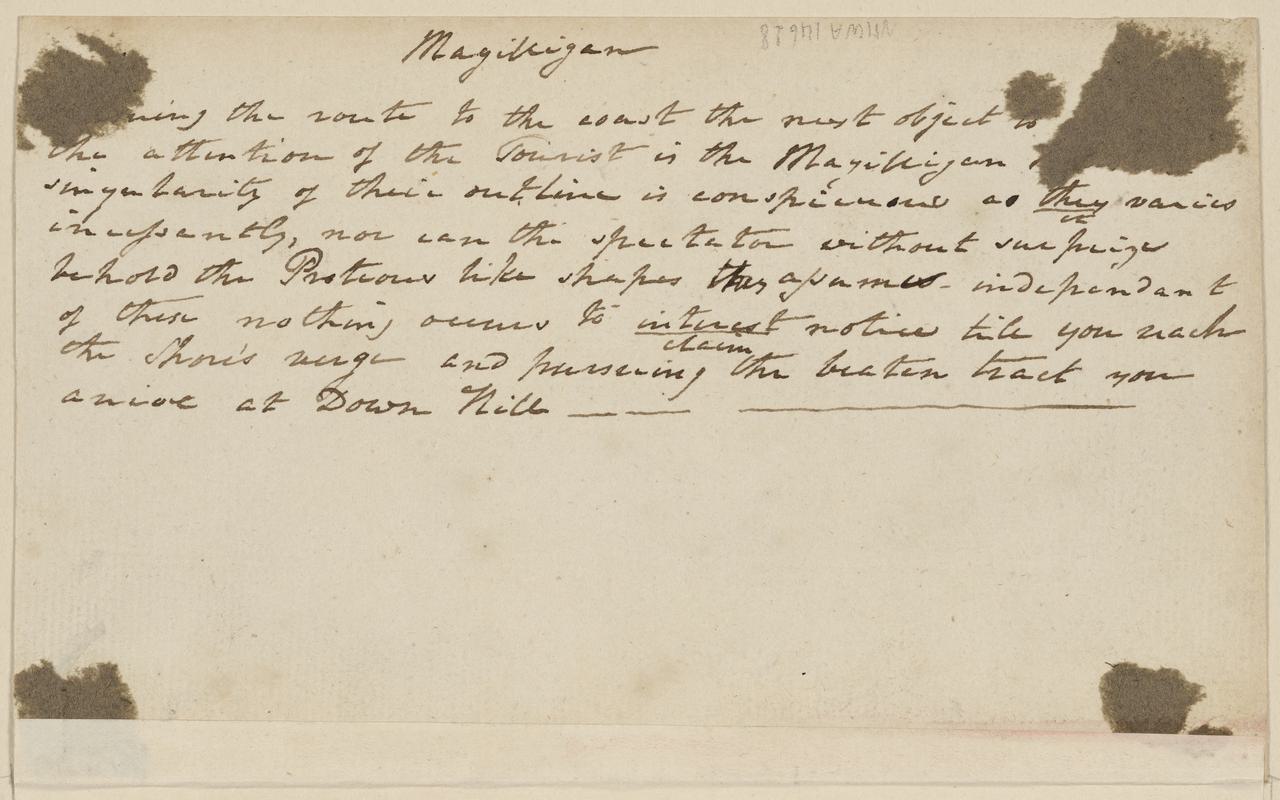 Magilligan
the route to the coast the next object to
the attention of the Tourist is the Magilligan
singularity of their outline is conspicuous as they varies
it
incessantly, nor can the spectator without surprize
behold the Proteous like shapes they assumes - independant
of these nothing occurs to interest notice till you reach
claim
the Shore's verge and pursuing the beaten tract you
arrive at Down Hill